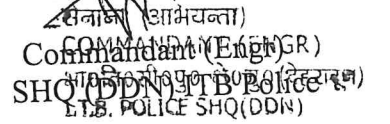 सेनानी (अभियन्ता)
COMMANDANT (ENGR)
Commandant (Engr)
SHQ (DDN) ITB Police
I.T.B. POLICE SHQ(DDN)